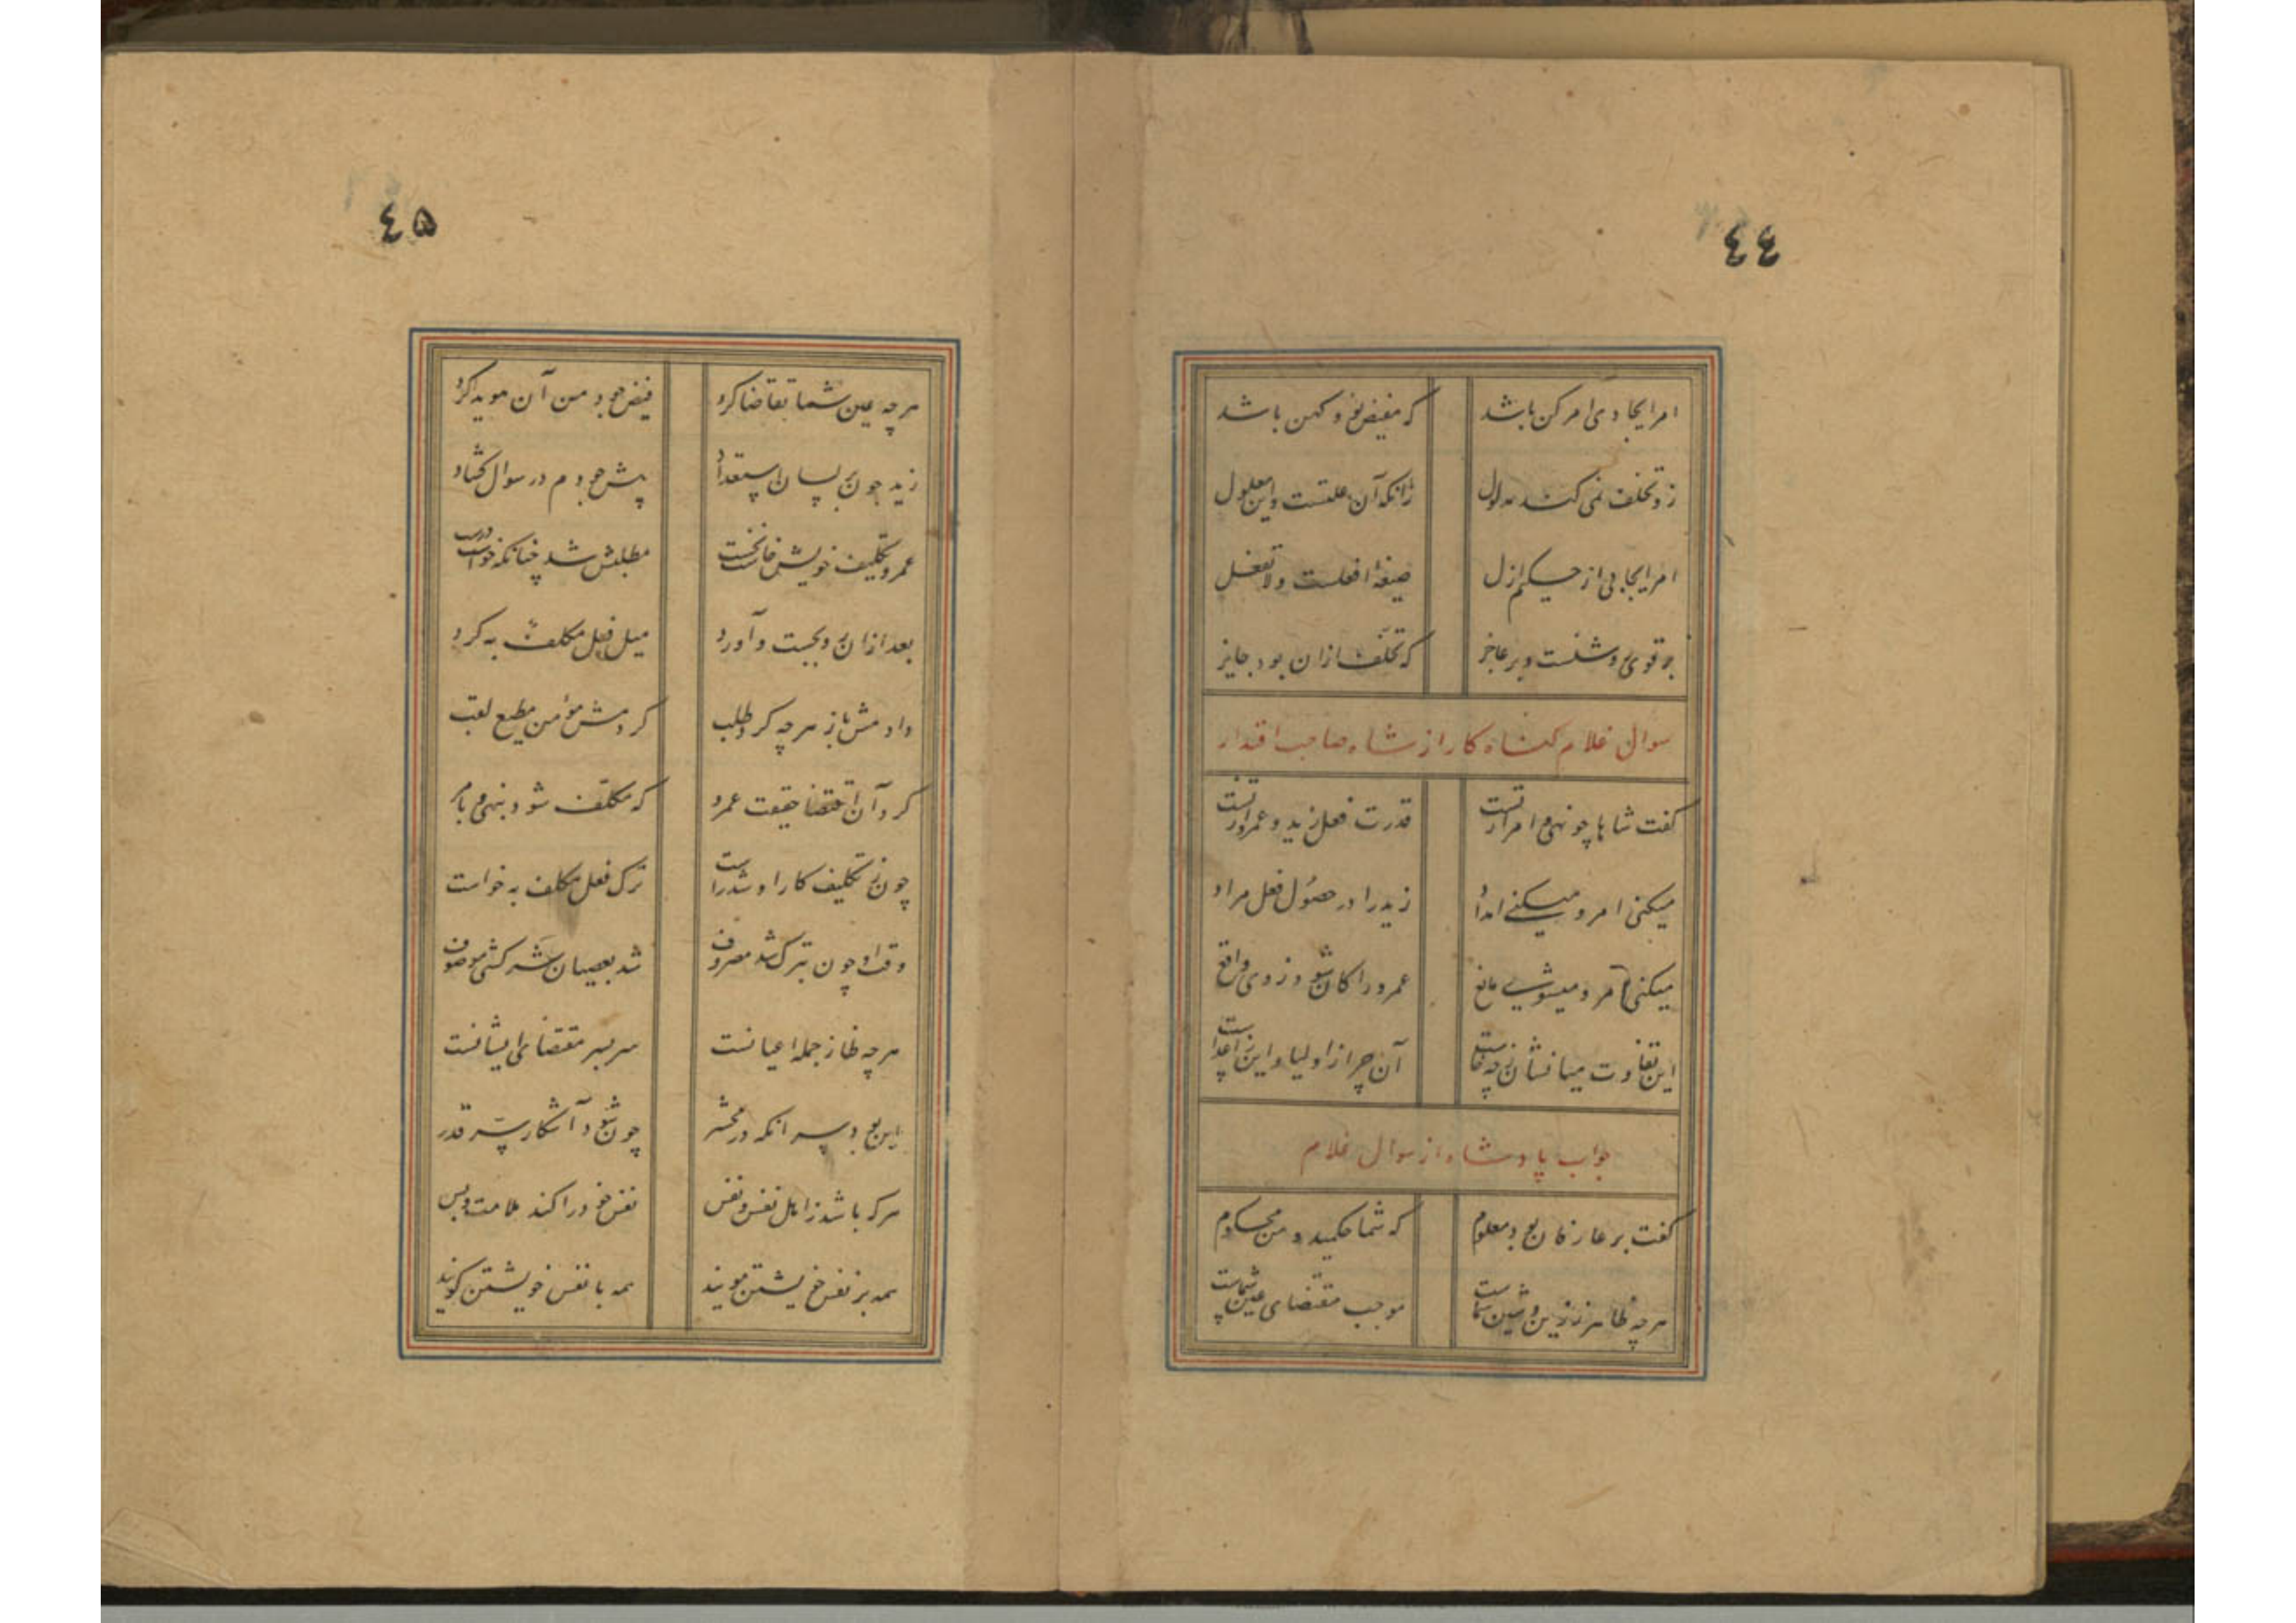 ٤٤
امر ایجادی امر کن باشد که مفیض نو و کهن باشد
زو تخلف نمی کند مدلول زانکه آن علتست و این معلول
امر ایجابی از حکیم ازل صیغهٔ افعلست و لا تفعل
بر قوی روشنست و بر عاجز که تخلف ازان بود جایز
سوال غلام کناه کار از شاه صاحب اقتدار
کفت شاها چو نهی و امر تراست قدرت فعل زید و عمرو تراست
میکنی امر و میکنی امداد زید را در حصول فعل مراد
میکنی امر و میشوی مانع عمرو را کان شود ز وی واقع
این تفاوت میانشان ز چه خاست آن چرا از اولیا و این ز اعداست
جواب پادشاه از سوال غلام
کفت بر عارفان بود معلوم که شما حکمید و من محکوم
هرچه ظاهر ز زین و شین شماست موجب مقتضای عین شماست
٤۵
هرچه عین شما تقاضا کرد فیض جود من آن هویدا کرد
زید چون بر لسان استعداد پیش جودم در سوال کشاد
عمرو تکلیف خویش خواست نخست مطلبش شد چنانکه خواست درست
بعد ازان روی بجست و آورد میل فعل مکلف به کرد
دادمش باز هرچه کرد طلب کردمش مؤمن مطیع لقب
کرد آن اقتضا حقیقت عمرو که مکلف شود بنهی و بامر
چون ز تکلیف کار او شد راست ترک فعل مکلف به خواست
وقت او چون بترک شد مصروف شد بعصیان و سرکشی موصوف
هرچه ظاهر ز جمله اعیانست سر بسر مقتضای ایشانست
این بود سر انکه در محشر چون شود آشکار سر قدر
هرکه باشد ز اهل نفس و نفس نفس خود را کند ملامت و بس
همه بر نفس خویشتن مویند همه با نفس خویشتن کویند